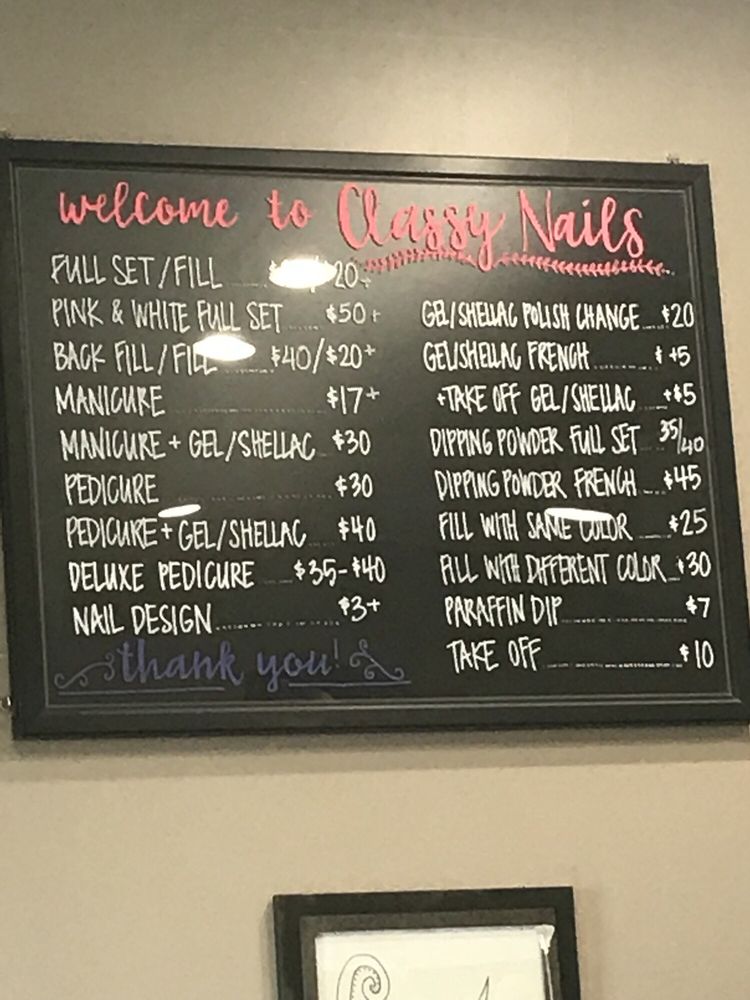 welcome to Classy Nails
FULL SET/FILL 20+
PINK & WHITE FULL SET $50+
BACK FILL/FILL $40/$20+
MANICURE $17+
MANICURE + GEL/SHELLAC $30
PEDICURE $30
PEDICURE + GEL/SHELLAC $40
DELUXE PEDICURE $35-$40
NAIL DESIGN $3+
thank you!
GEL/SHELLAC POLISH CHANGE $20
GEL/SHELLAC FRENCH $+5
+TAKE OFF GEL/SHELLAC +$5
DIPPING POWDER FULL SET 35/40
DIPPING POWDER FRENCH $45
FILL WITH SAME COLOR $25
FILL WITH DIFFERENT COLOR $30
PARAFFIN DIP $7
TAKE OFF $10